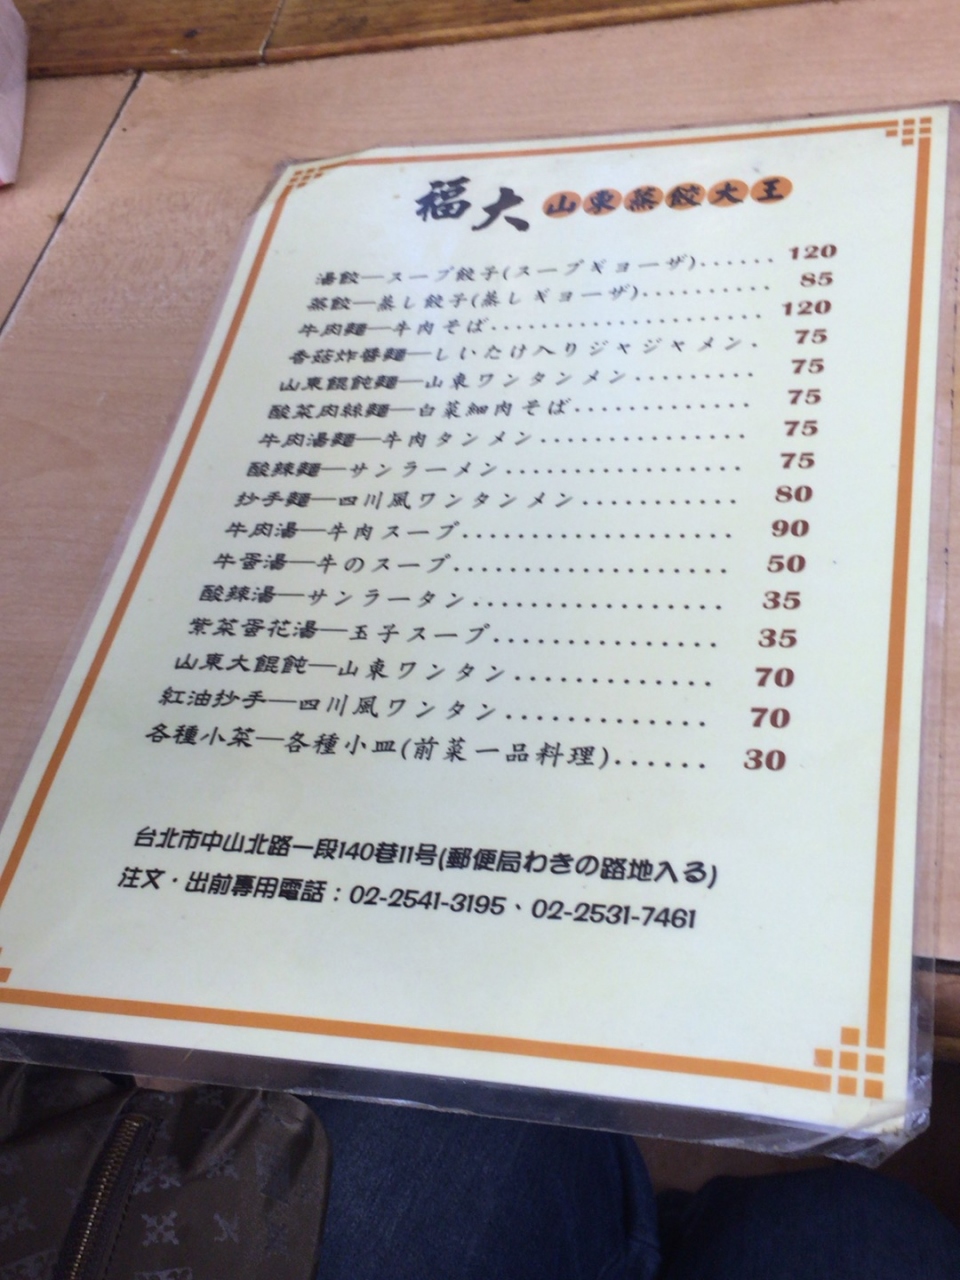 福大 山東蒸餃大王
湯餃—スープ餃子(スープギョーザ)...... 120
蒸餃—蒸し餃子(蒸しギョーザ).......... 85
牛肉麵—牛肉そば..................... 120
香菇炸醬麵—しいたけ入りジャジャメン. 75
山東餛飩麵—山東ワンタンメン......... 75
酸菜肉絲麵—白菜細肉そば.............. 75
牛肉湯麵—牛肉タンメン................ 75
酸辣麵—サンラーメン.................. 75
抄手麵—四川風ワンタンメン............ 80
牛肉湯—牛肉スープ................... 90
牛蛋湯—牛のスープ................... 50
酸辣湯—サンラータン................. 35
紫菜蛋花湯—玉子スープ............... 35
山東大餛飩—山東ワンタン............. 70
紅油抄手—四川風ワンタン............. 70
各種小菜—各種小皿(前菜一品料理)...... 30
台北市中山北路一段140巷11号(郵便局わきの路地入る)
注文・出前專用電話：02-2541-3195、02-2531-7461